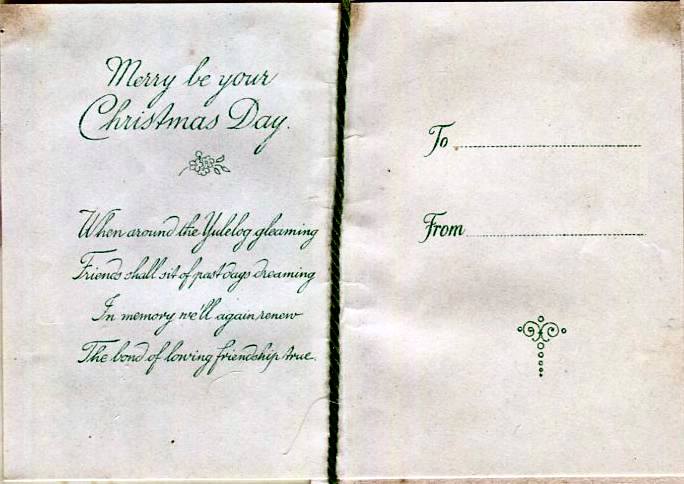 Merry be your
Christmas Day.
When around the Yulelog gleaming
Friends shall sit of past days dreaming
In memory we'll again renew
The bond of loving friendship true.
To
From